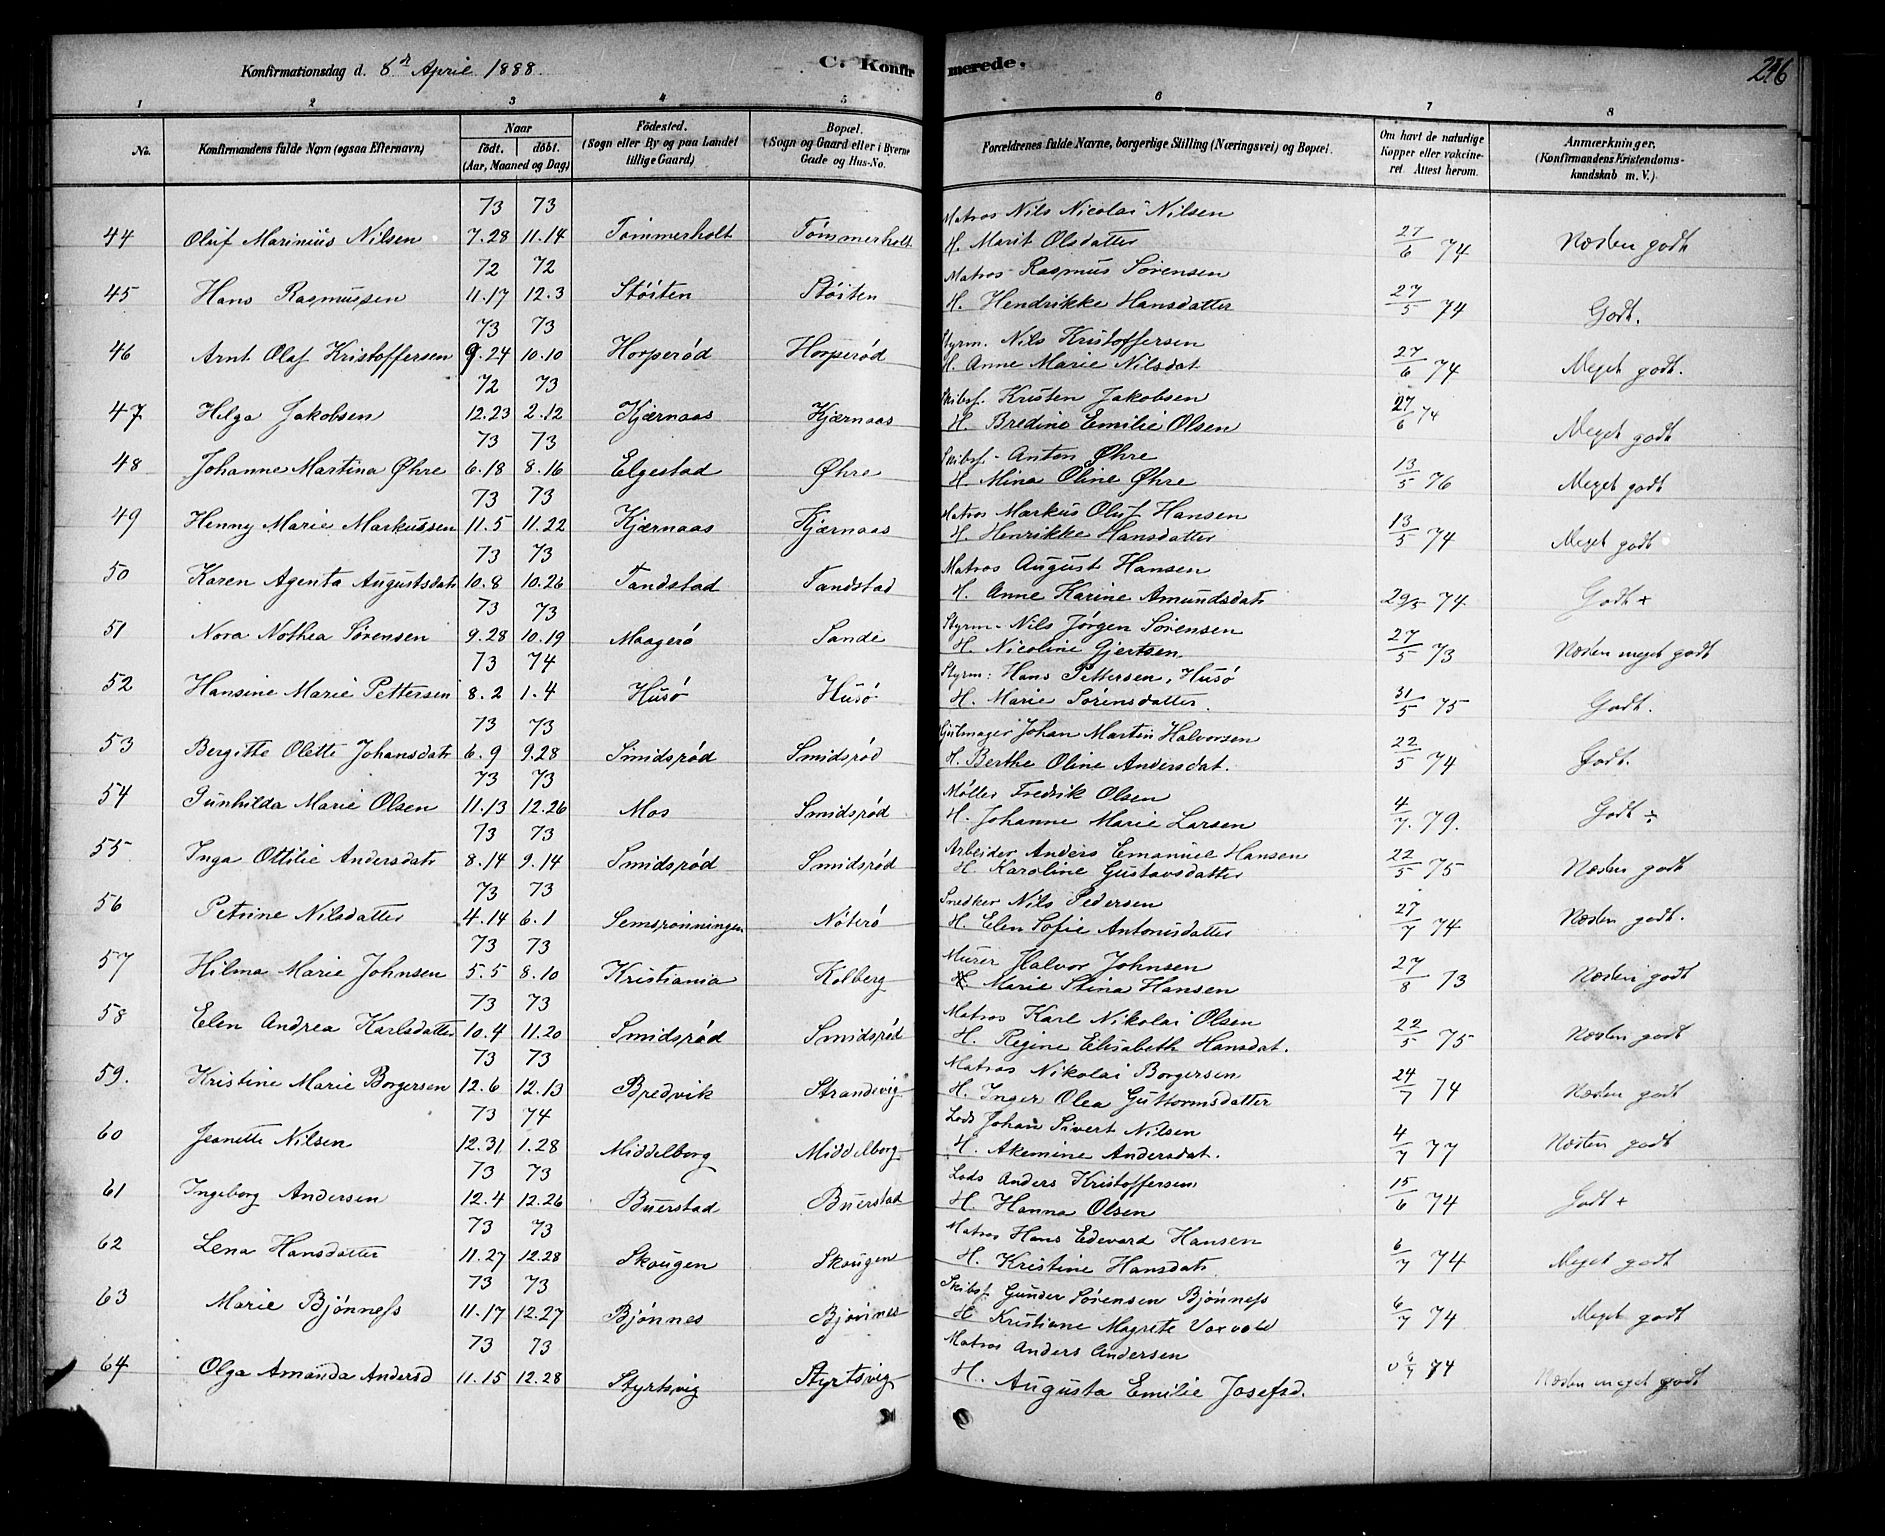 Konfirmationsdag d. 8de April 1888.
C. Konfirmerede.
246
1 2 3 4 5 6 7 8
No. Konfirmandens fulde Navn (ogsaa Efternavn) Naar født. døbt. (Aar, Maaned og Dag) Fødested. (Sogn eller By og paa Landet tillige Gaard) Bopæl. (Sogn og Gaard eller i Byerne Gade og Hus-No. Forældrenes fulde Navne, borgerlige Stilling (Næringsvei) og Bopæl. Om havt de naturlige Kopper eller vakcineret Attest herom. Anmærkninger. (Konfirmandens Kristendomskundskab m. V.).
73 73 Matros Nils Nicolai Nilsen
44 Oluf Marinius Nilsen 7.28 11.14 Tømmerholt Tømmerholt H. Marit Olsdatter 27/6 74 Næsten godt
72 72 Matros Rasmus Sørensen
45 Hans Rasmussen 11.17 12.3 Støiten Støiten H. Hendrikke Hansdatter 27/5 74 Godt.
73 73 Styrm. Nils Kristoffersen
46 Arnt Olaf Kristoffersen 9.24 10.10 Horperød Horperød H. Anne Marie Nilsdat 27/6 74 Meget godt.
72 73 Skibsf. Kristen Jakobsen
47 Helga Jakobsen 12.23 2.12 Kjærnaas Kjærnaas H. Bredine Emilie Olsen 27/6 74 Meget godt
73 73 Skibsf. Anton Øhre
48 Johanne Martina Øhre 6.18 8.16 Elgestad Øhre H. Mina Oline Øhre 13/5 76 Meget godt
73 73 Matros Markus Oluf Hansen
49 Henny Marie Markussen 11.5 11.22 Kjærnaas Kjærnaas H. Henrikke Hansdatter 13/5 74 Meget godt
73 73 Matros August Hansen
50 Karen Agenta Augustsdatr 10.8 10.26 Tandstad Tandstad H. Anne Karine Amundsdatr 29/5 74 Godt +
73 73 Styrm. Nils Jørgen Sørensen
51 Nora Nothea Sørensen 9.28 10.19 Maagerø Sande H. Nicoline Gjertsen 27/5 73 Næsten meget godt
73 74 Styrm: Hans Pettersen, Husø
52 Hansine Marie Pettersen 8.2 1.4 Husø Husø H. Marie Sørensdatter. 31/5 75 Godt.
73 73 Gulmager Johan Martin Halvorsen
53 Bergitte Olette Johansdatr 6.9 9.28 Smidsrød Smidsrød H. Berthe Oline Andersdat. 22/5 74 Godt.
73 73 Møller Fredrik Olsen
54 Gunhilda Marie Olsen 11.13 12.26 Mos Smidsrød H. Johanne Marie Larsen 4/7. 79. Godt ÷
73 73 Arbeider Anders Emanuel Hansen
55 Inga Ottilie Andersdatr 8.14 9.14 Smidsrød Smidsrød H. Karoline Gustavsdatter 22/5 75 Næsten godt
73 73 Snedker Nils Pedersen
56 Petrine Nilsdatter 4.14 6.1 Semsrønningen Nøterø H. Elen Sofie Antonisdatter 27/7 74 Næsten godt.
73 73 Murer Halvor Johnsen
57 Hilma Marie Johnsen 5.5 8.10 Kristiania Kolberg H. Marie Stina Hansen 27/8 73 Næsten godt
73 73 Matros Karl Nikolai Olsen
58 Elen Andrea Karlsdatter 10.4 11.20 Smidsrød Smidsrød H. Regine Elisabeth Hansdat. 22/5 75 Næsten godt
73 73 Matros Nikolai Borgersen
59. Kristine Marie Borgersen 12.6 12.13 Bredvik Strandvig H. Inger Olea Guttormsdatter 24/7 74 Næsten godt
73 74 Lods Johan Sivert Nilsen
60 Jeanette Nilsen 12.31 1.28 Middelborg Middelborg H. Akemine Andersdat. 4/7 77 Næsten godt
73 73 Lods Anders Kristoffersen
61 Ingeborg Andersen 12.4 12.26 Buerstad Buerstad H. Hanna Olsen 15/6 74 Godt +
73 73 Matros Hans Edevard Hansen
62 Lena Hansdatter 11.27 12.28 Skougen Skougen H. Kristine Hansdatr. 6/7 74 Meget godt
73 73 Skibsf. Gunder Sørensen Bjønness
63 Marie Bjønness 11.17 12.27 Bjønnes Bjønnes H. Kristiane Magrete Vaxvold 6/7 74 Meget godt
73 73 Matros Anders Andersen
64 Olga Amanda Andersd 11.15 12.28 Styrtsvig Styrtsvig H. Augusta Emilie Josefsd. 6/7 74 Næsten meget godt